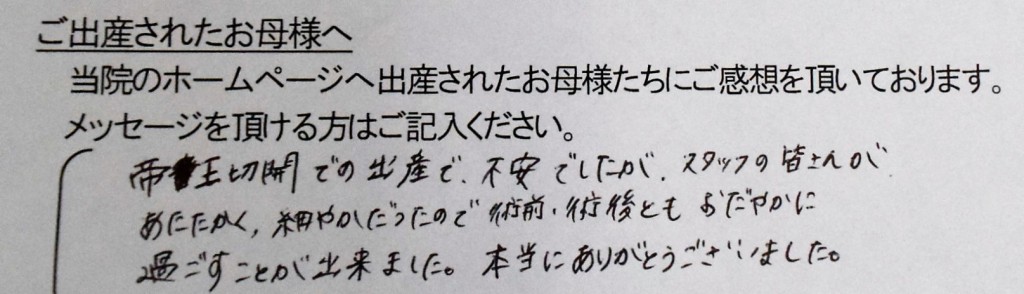 ご出産されたお母様へ
当院のホームページへ出産されたお母様たちにご感想を頂いております。
メッセージを頂ける方はご記入ください。
帝王切開での出産で、不安でしたが、スタッフの皆さんが
あたたかく、細やかだったので術前・術後とも おだやかに
過ごすことが出来ました。本当にありがとうございました。